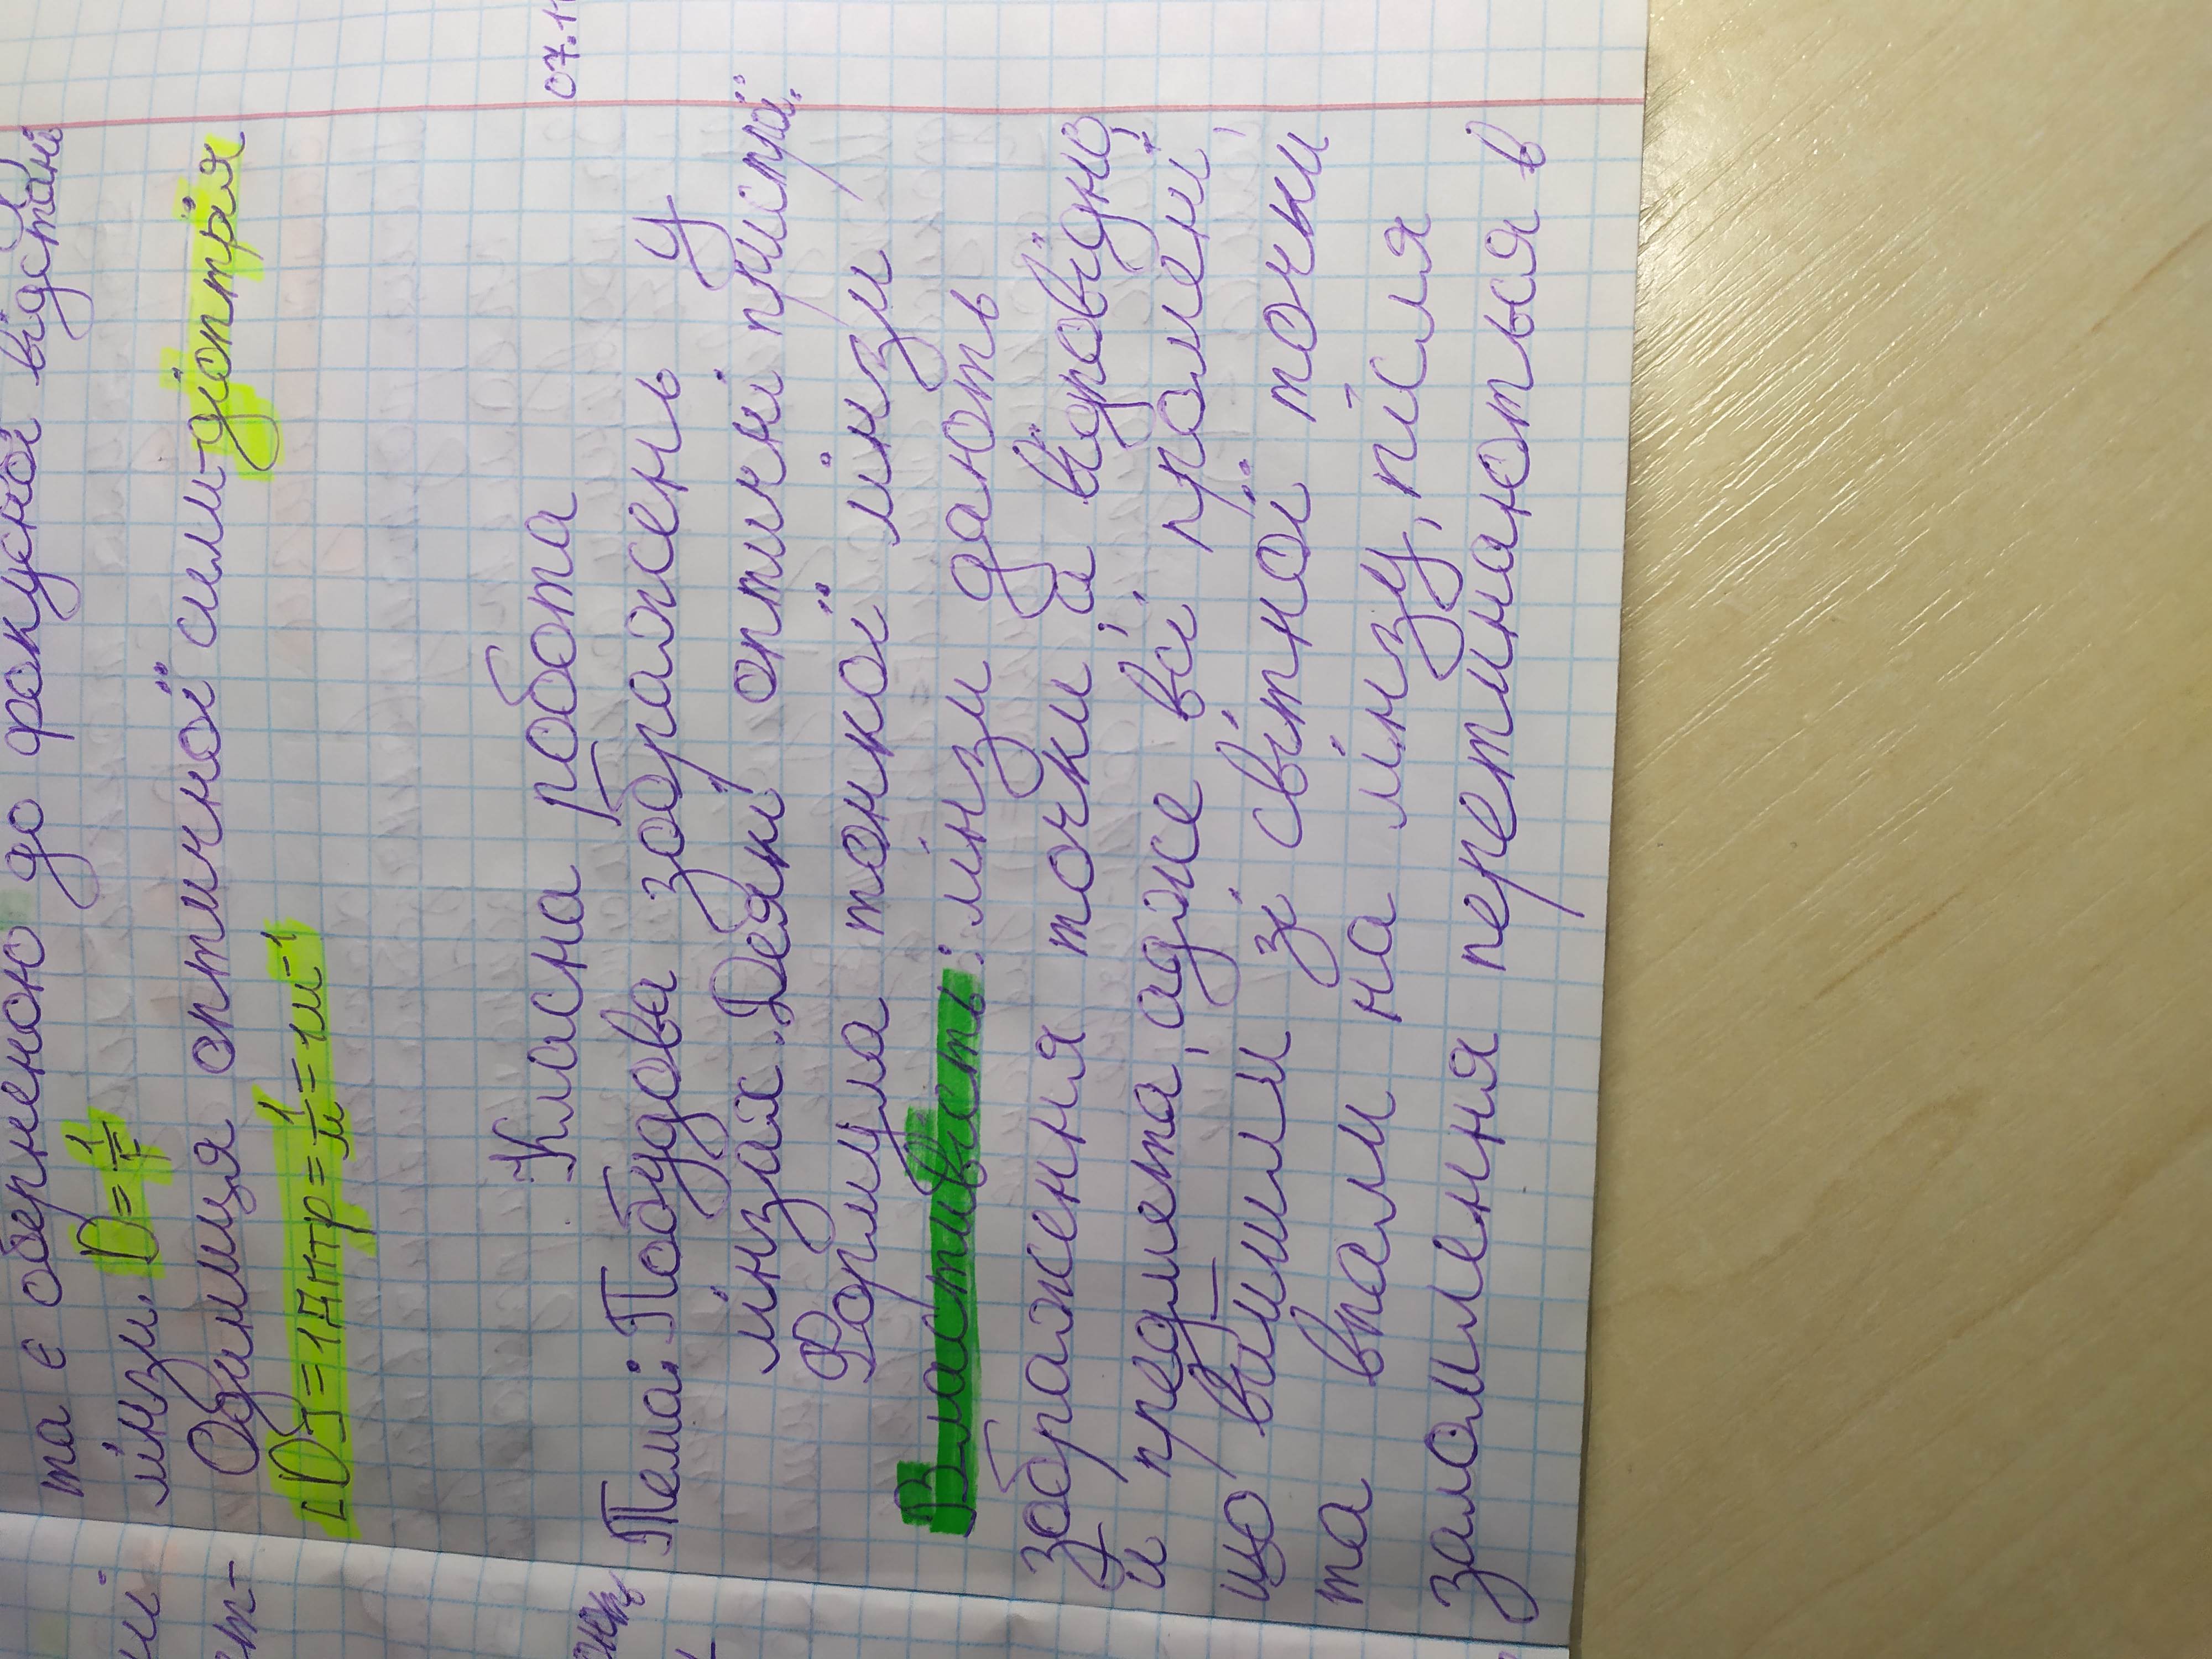 та є оберненою до фокусної відстані
лінзи. D=1/F
Одиниця оптичної сили-діоптрія
[D]=1дптр=1/м=1м⁻¹
07.11
Класна робота
Тема: Побудова зображень у
лінзах. Деякі оптичні пристрої.
Формула тонкої лінзи
Властивість: лінзи дають
зображення точки й відповідно
й предмета, адже всі промені,
що вийшли зі світної точки
та впали на лінзу, після
заломлення перетинаються в